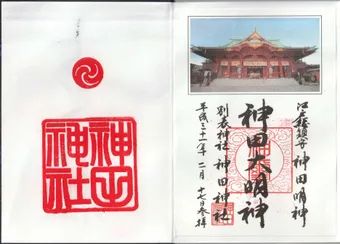 江戸総鎮守 神田明神
神田大明神
別表神社 神田神社
平成三十一年二月十七日参拝
神田
神社